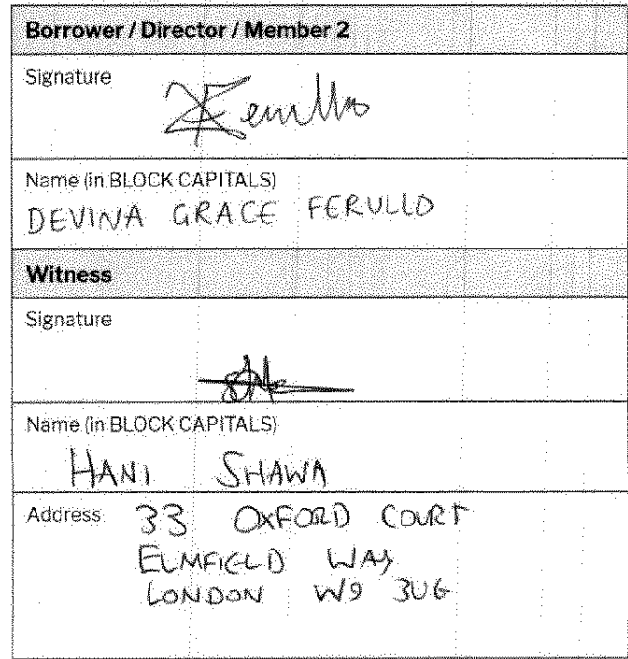 Borrower / Director / Member 2
Signature
Ferullo
Name (in BLOCK CAPITALS)
DEVINA GRACE FERULLO
Witness
Signature
Name (in BLOCK CAPITALS)
HANI SHAWA
Address 33 OXFORD COURT
ELMFIELD WAY
LONDON W9 3UG